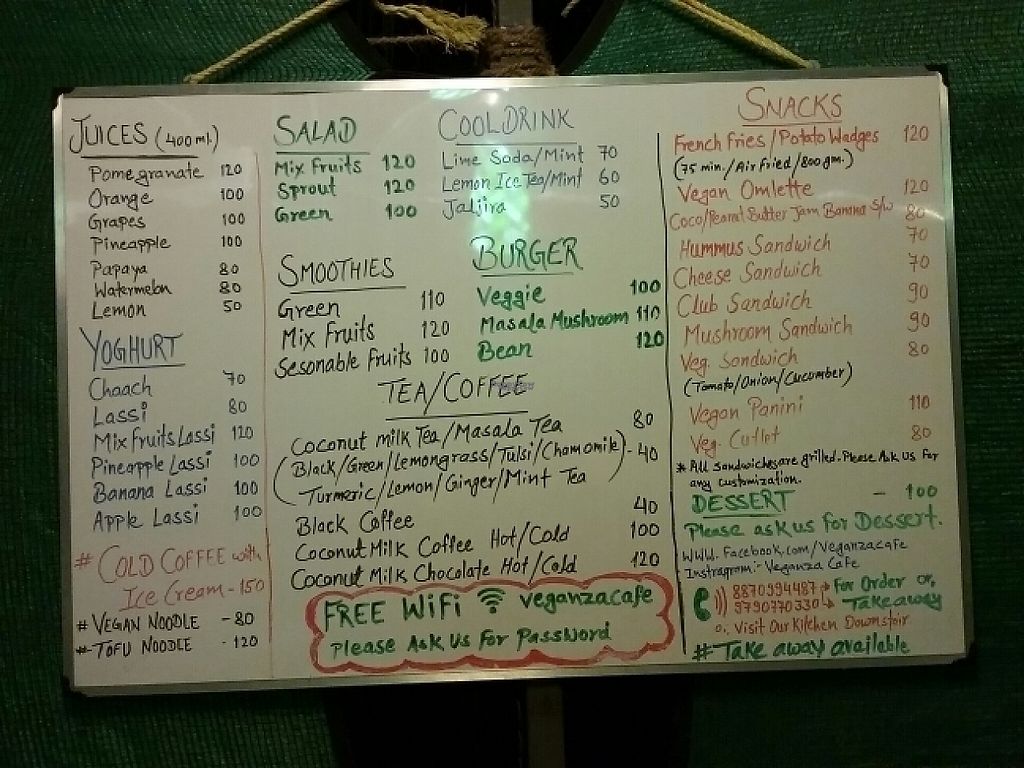 JUICES (400 ml.)
Pomegranate 120
Orange 100
Grapes 100
Pineapple 100
Papaya 80
Watermelon 80
Lemon 50
YOGHURT
Chaach 70
Lassi 80
Mix Fruits Lassi 120
Pineapple Lassi 100
Banana Lassi 100
Apple Lassi 100
# COLD COFFEE with
Ice Cream - 150
# VEGAN NOODLE - 80
# TOFU NOODLE - 120
SALAD
Mix Fruits 120
Sprout 120
Green 100
COOL DRINK
Lime Soda/Mint 70
Lemon Ice Tea/Mint 60
Jaljira 50
SMOOTHIES
Green 110
Mix Fruits 120
Sesonable Fruits 100
BURGER
Veggie 100
Masala Mushroom 110
Bean 120
TEA/COFFEE
Coconut milk Tea/Masala Tea 80
(Black/Green/Lemongrass/Tulsi/Chamomile) - 40
Turmeric/Lemon/Ginger/Mint Tea
Black Coffee 40
Coconut Milk Coffee Hot/Cold 100
Coconut Milk Chocolate Hot/Cold 120
FREE WiFi veganzacafe
Please Ask Us For Password
SNACKS
French Fries/Potato Wadges 120
(75 min./Air Fried/800 gm.)
Vegan Omlette 120
Coco/Peanut Butter Jam Banana S/w 80
Hummus Sandwich 70
Cheese Sandwich 70
Club Sandwich 90
Mushroom Sandwich 90
Veg. Sandwich 80
(Tomato/Onion/Cucumber)
Vegan Panini 110
Veg. Cutlet 80
# All Sandwiches are grilled. Please Ask Us For
any customization.
DESSERT - 100
Please ask us for Dessert.
www.facebook.com/Veganzacafe
Instragram:- Veganza Cafe
8870994487 For Order or,
9790770330 Takeaway
or, Visit Our Kitchen Downstair
# Take away available